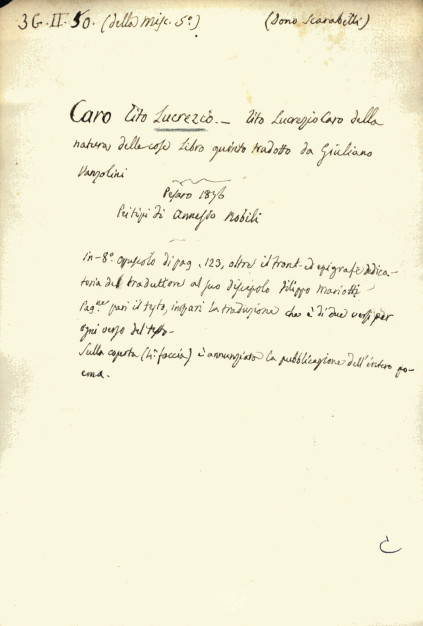 36.II.50. (della Misc. 5ª) (Dono Scarabelli)
Caro Tito Lucrezio. – Tito Lucrezio Caro della
natura delle cose Libro quinto tradotto da Giuliano
Vanzolini
Pesaro 1836
Pei tipi di Annesio Nobili
In-8º opuscolo di pag. 123, oltre il front. ed epigrafe dedica-
toria del traduttore al suo discepolo Filippo Mariotti
Pag.ne pari il testo, impari la traduzione che è di due versi per
ogni verso del testo.
Sulla coperta (4ª faccia) è annunziato la pubblicazione dell'intero po-
ema.